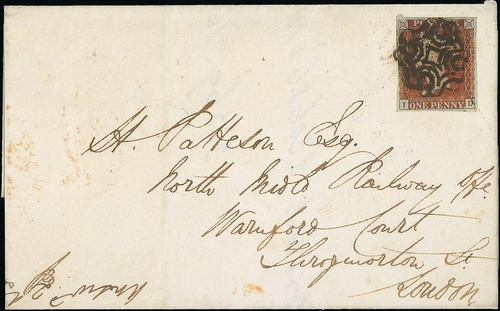 I D
ONE PENNY
H. Patteson Esq.
North Midld Railway Offe.
Warnford Court
Throgmorton St.
London